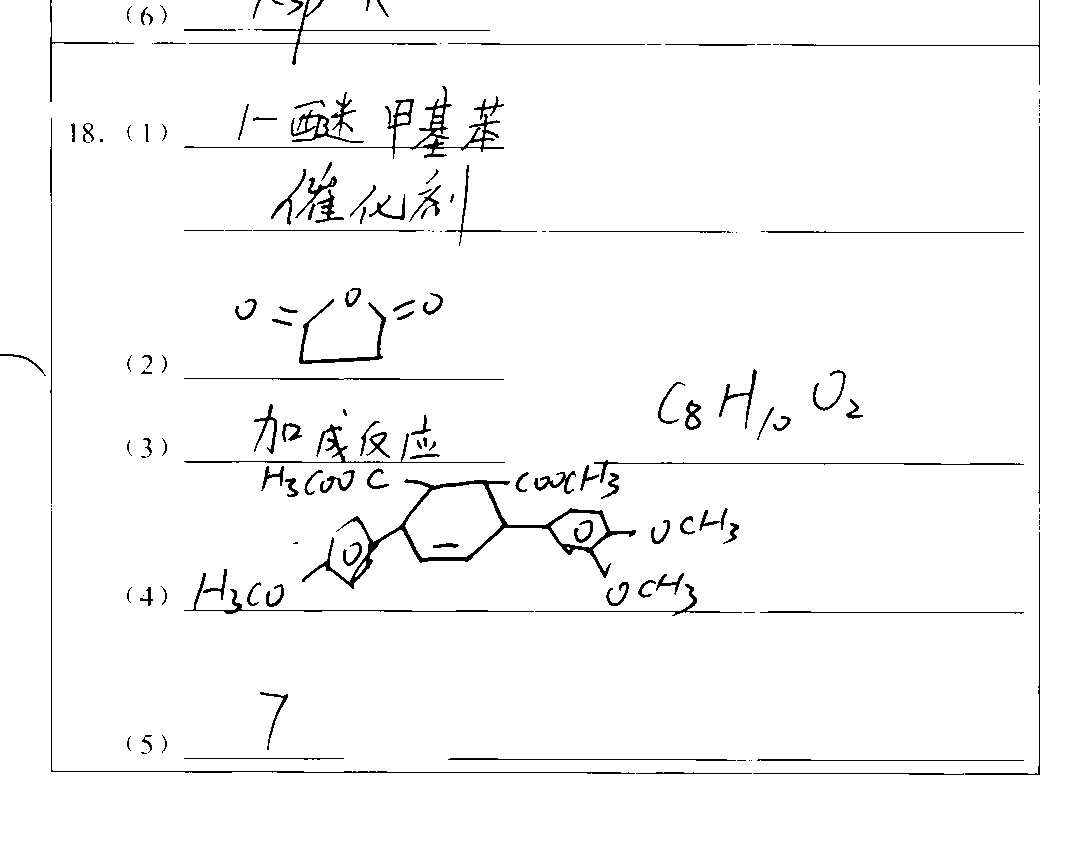 (6)
18. (1) 1-醚甲基苯
催化剂
(2) O = O = O
(3) 加成反应 C8H10O2
H3COOC COOCH3
OCH3
(4) H3CO OCH3
(5) 7